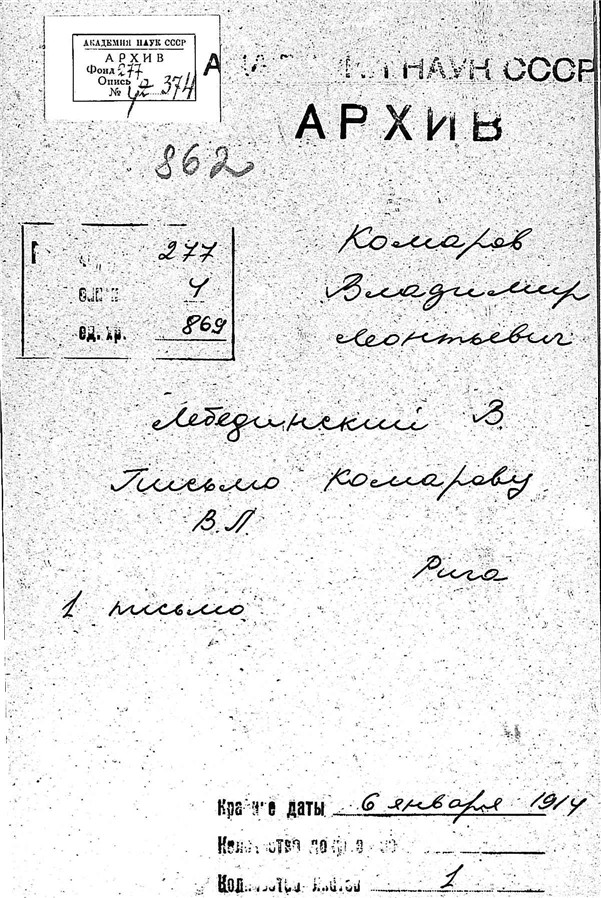 АКАДЕМИЯ НАУК СССР
АРХИВ
Фонд 277
Опись
№ 374
НАУК СССР
АРХИВ
862
277
4
ед. хр. 869
Комаров
Владимир
Леонтьевич
Лебединский В.
Письмо Комарову
В.Л.
Рига
1 письмо
Крайние даты 6 января 1914
Количество листов 1